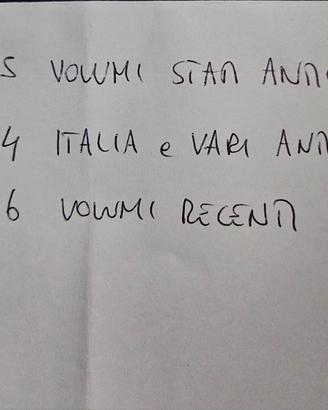 5 VOLUMI STATI ANTI
4 ITALIA e VARI ANTI
6 VOLUMI RECENTI